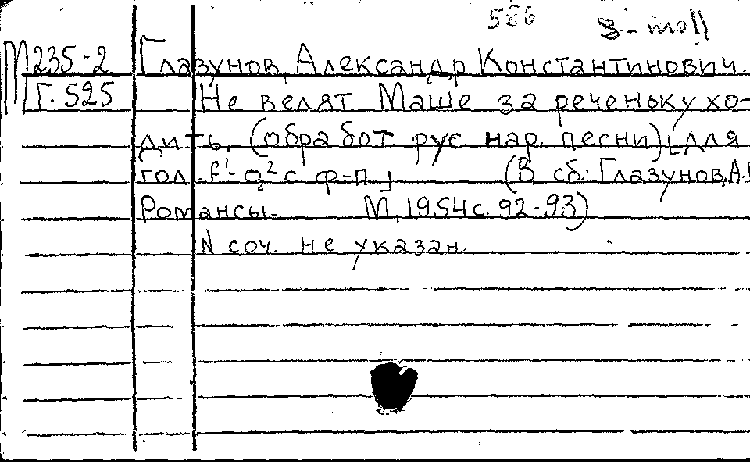 586 g-moll
М235-2 Глазунов, Александр Константинович.
Г.525 Не велят Маше за реченьку хо-
дить. (обработ рус нар. песни) [для
гол. f¹-g² с ф-п] (В сб: Глазунов, А.
Романсы. М, 1954 с. 92-93)
N соч. не указан.